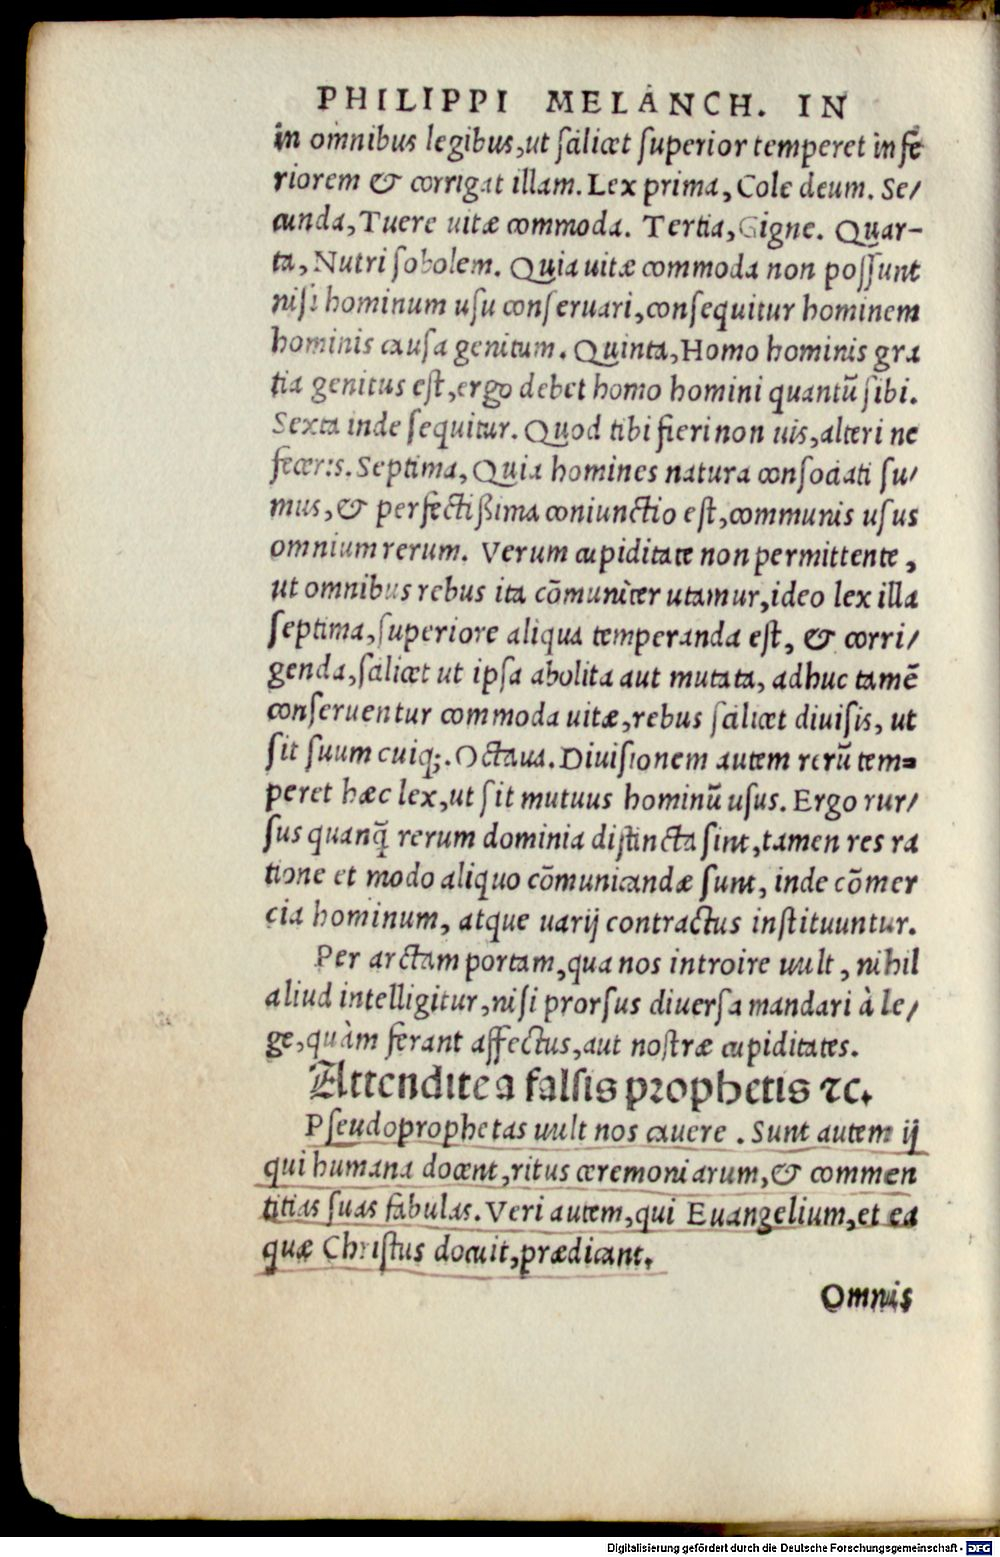 PHILIPPI MELANCH. IN
in omnibus legibus,ut scilicet superior temperet infe
riorem & corrigat illam. Lex prima, Cole deum. Se/
cunda, Tuere uitæ commoda. Tertia, Gigne. Quar-
ta, Nutri sobolem. Quia uitæ commoda non possunt
nisi hominum usu conseruari, consequitur hominem
hominis causa genitum. Quinta, Homo hominis gra
tia genitus est, ergo debet homo homini quantū sibi.
Sexta inde sequitur. Quod tibi fieri non uis, alteri ne
feceris. Septima, Quia homines natura consociati su/
mus, & perfectißima coniunctio est, communis usus
omnium rerum. Verum cupiditate non permittente,
ut omnibus rebus ita cōmuniter utamur, ideo lex illa
septima, superiore aliqua temperanda est, & corri/
genda, scilicet ut ipsa abolita aut mutata, adhuc tamē
conseruentur commoda uitæ, rebus scilicet diuisis, ut
sit suum cuiq;. Octaua. Diuisionem autem rerū tem=
peret hæc lex, ut sit mutuus hominū usus. Ergo rur/
sus quanq̄ rerum dominia distincta sint, tamen res ra
tione et modo aliquo cōmunicandæ sunt, inde cōmer
cia hominum, atque uarij contractus instituuntur.
Per arctam portam, qua nos introire uult, nihil
aliud intelligitur, nisi prorsus diuersa mandari à le/
ge, quàm ferant affectus, aut nostræ cupiditates.
Attendite a falsis prophetis ꝛc.
Pseudoprophetas uult nos cauere. Sunt autem ij
qui humana docent, ritus ceremoniarum, & commen
titias suas fabulas. Veri autem, qui Euangelium, et ea
quæ Christus docuit, prædicant.
Omnis
Digitalisierung gefördert durch die Deutsche Forschungsgemeinschaft - DFG